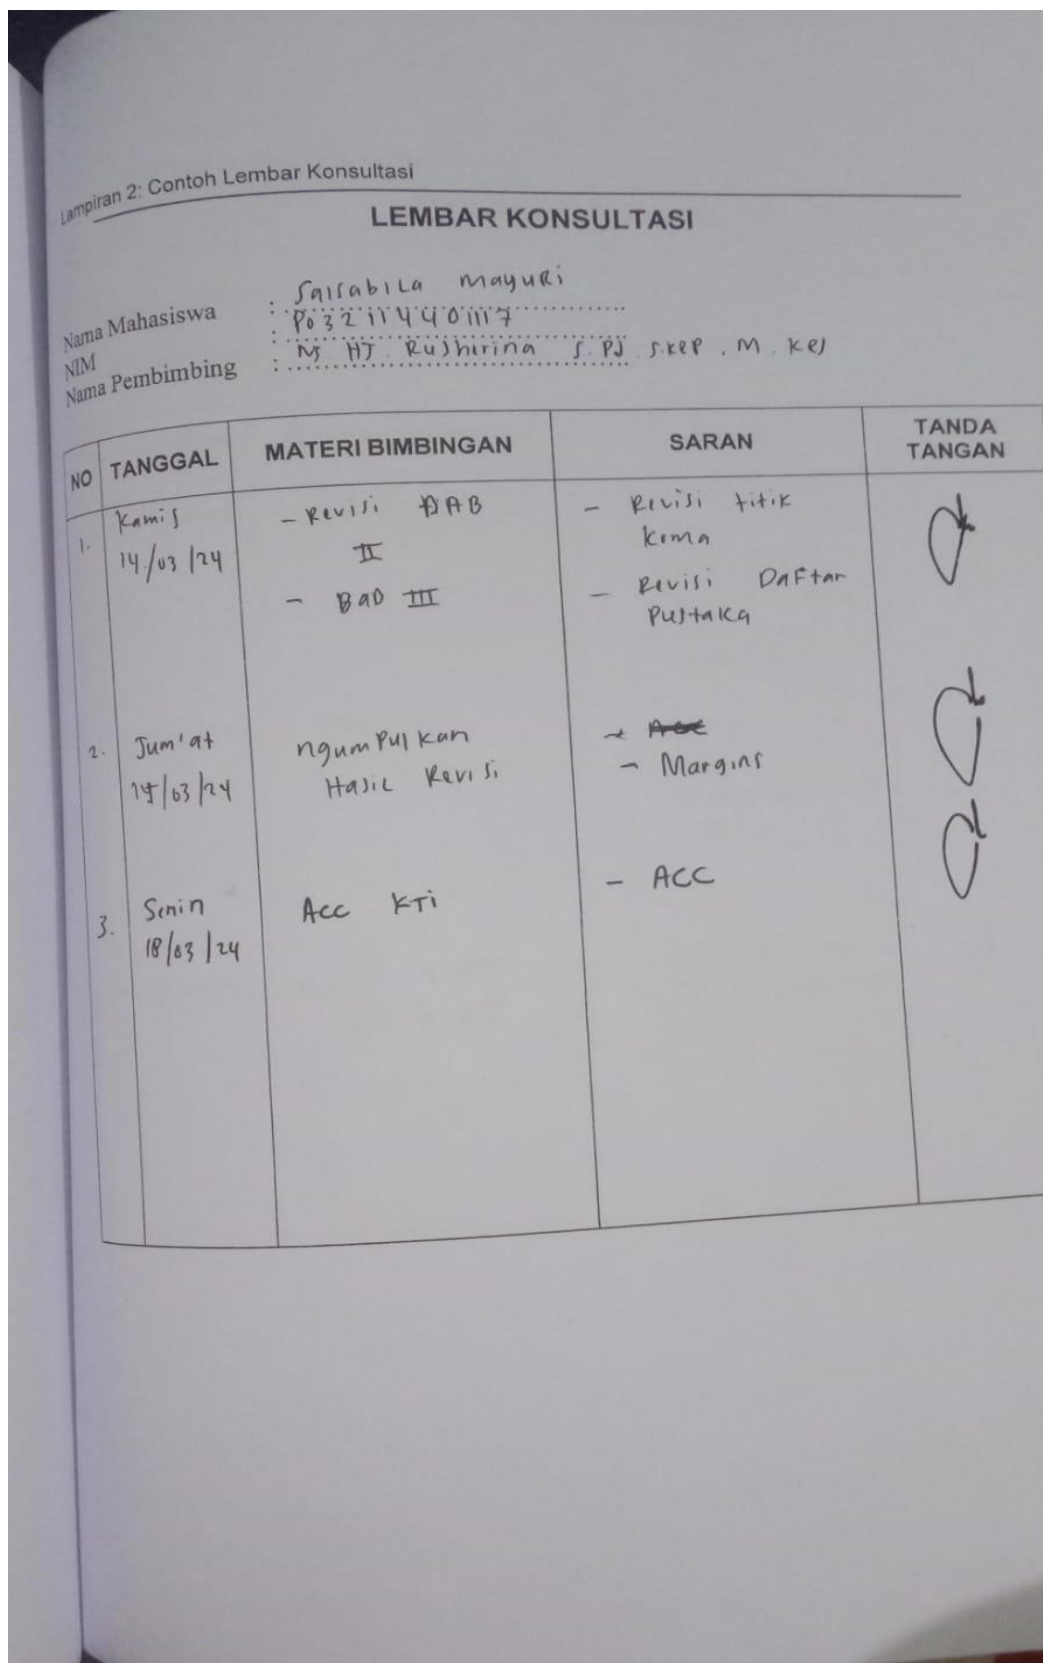 Lampiran 2: Contoh Lembar Konsultasi
LEMBAR KONSULTASI
Nama Mahasiswa : Salsabila Mayuri
NIM : P032114401117
Nama Pembimbing : Ns HJ Rusherina S.Pd S.Kep, M. Kes
NO TANGGAL MATERI BIMBINGAN SARAN TANDA TANGAN
1. Kamis - Revisi BAB - Revisi titik
14/03/24 II koma
- Bab III - Revisi Daftar
Pustaka
2. Jum'at ngumpulkan
15/03/24 Hasil Revisi - Margins
3. Senin Acc KTi - ACC
18/03/24